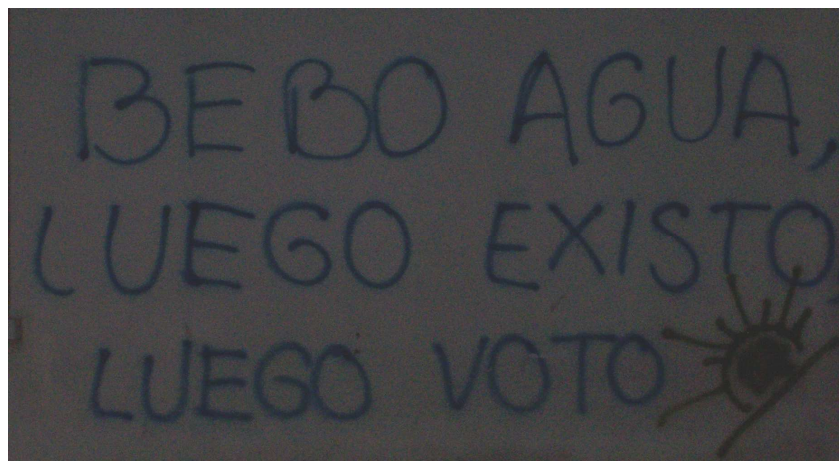 BEBO AGUA,
LUEGO EXISTO
LUEGO VOTO